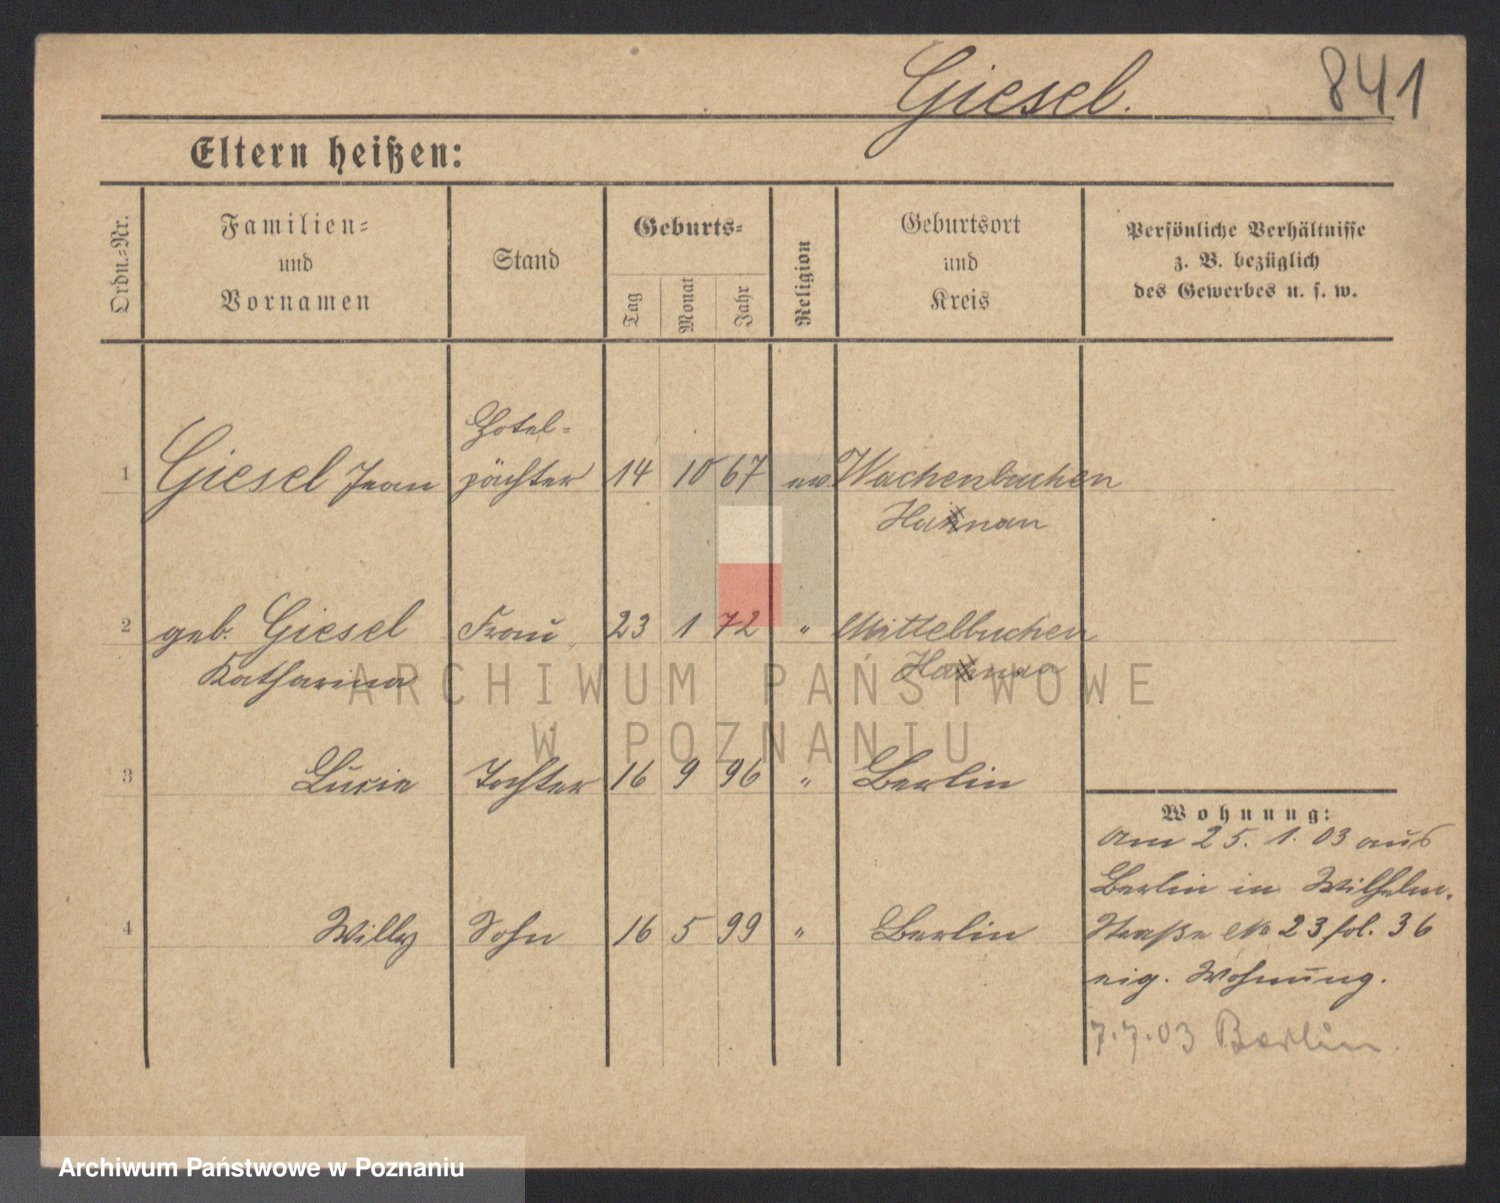 Giesel. 841
Eltern heißen:
Ordn.-Nr.
Familien-
und
Vornamen
Stand
Geburts-
Tag
Monat
Jahr
Religion
Geburtsort
und
Kreis
Persönliche Verhältnisse
z. B. bezüglich
des Gewerbes u. s. w.
Hotel-
1 Giesel Jean pächter 14 10 67 ev. Wachenbuchen
Hanau
2 geb. Giesel Frau 23 1 72 " Mittelbuchen
Katharina Hanau
ARCHIWUM PAŃSTWOWE
W POZNANIU
3 Lucie Tochter 16 9 96 " Berlin
Wohnung:
Am 25. 1. 03 aus
Berlin in Wilhelm-
4 Willy Sohn 16 5 99 " Berlin
Straße No 23 fol. 36
eig. Wohnung.
7.7.03 Berlin.
Archiwum Państwowe w Poznaniu